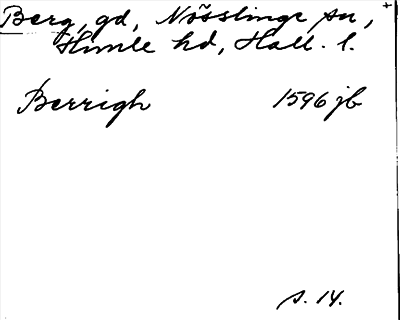 Berg, gd, Nösslinge sn,
Himle hd, Hall. l.
Berrigh 1596 jb
s. 14.